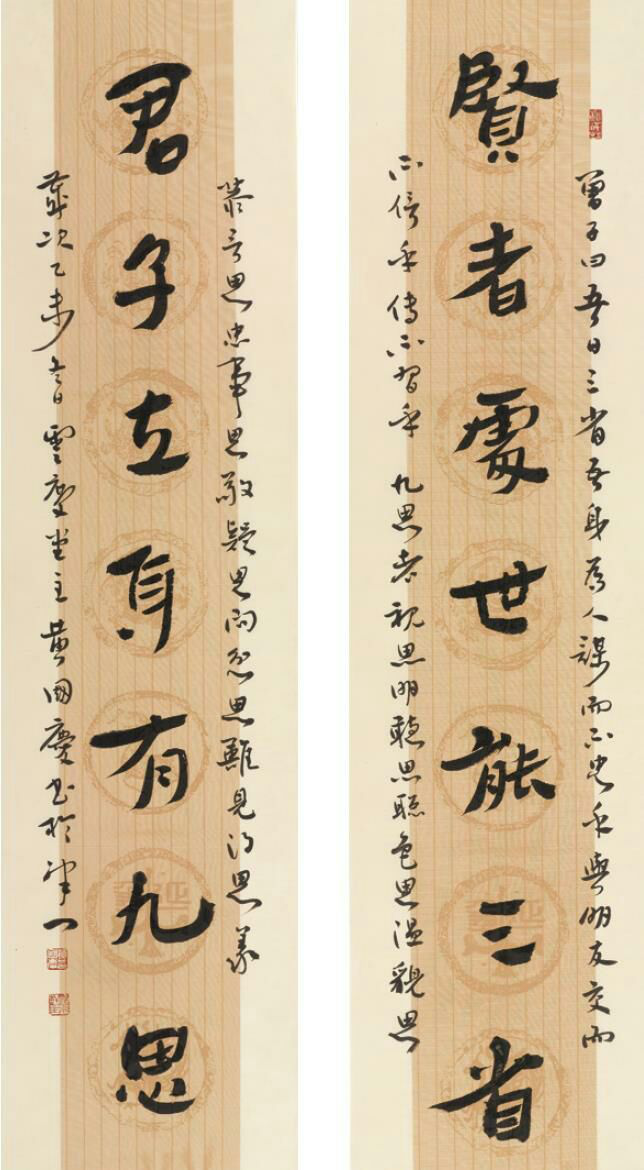 曾子曰吾日三省吾身為人謀而不忠乎與朋友交而
賢者處世能三省
不信乎傳不習乎 九思者視思明聽思聰色思溫貌思
恭言思忠事思敬疑思問忿思難見得思義
君子立身有九思
歲次乙未春雲堂主黃國慶書於津門